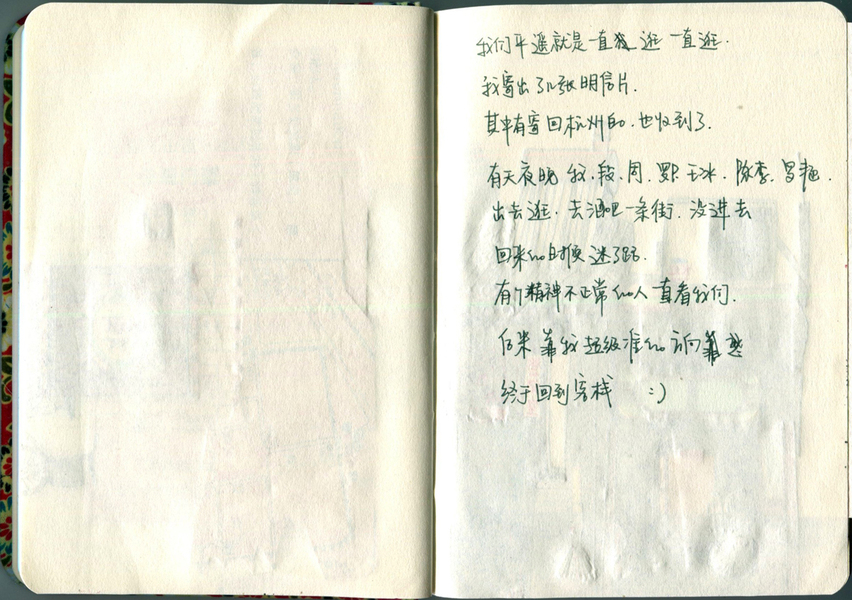 我们平遥就是一直逛 一直逛.
我寄出了几张明信片.
其中有寄回杭州的.也收到了.
有天夜晚 我.段.周.罗.玉冰.陈李.
出去逛.去酒吧一条街.没进去
回来的时候 迷了路.
有个精神不正常的人直看我们.
后来 靠我超级准的方向感
终于回到客栈 :)